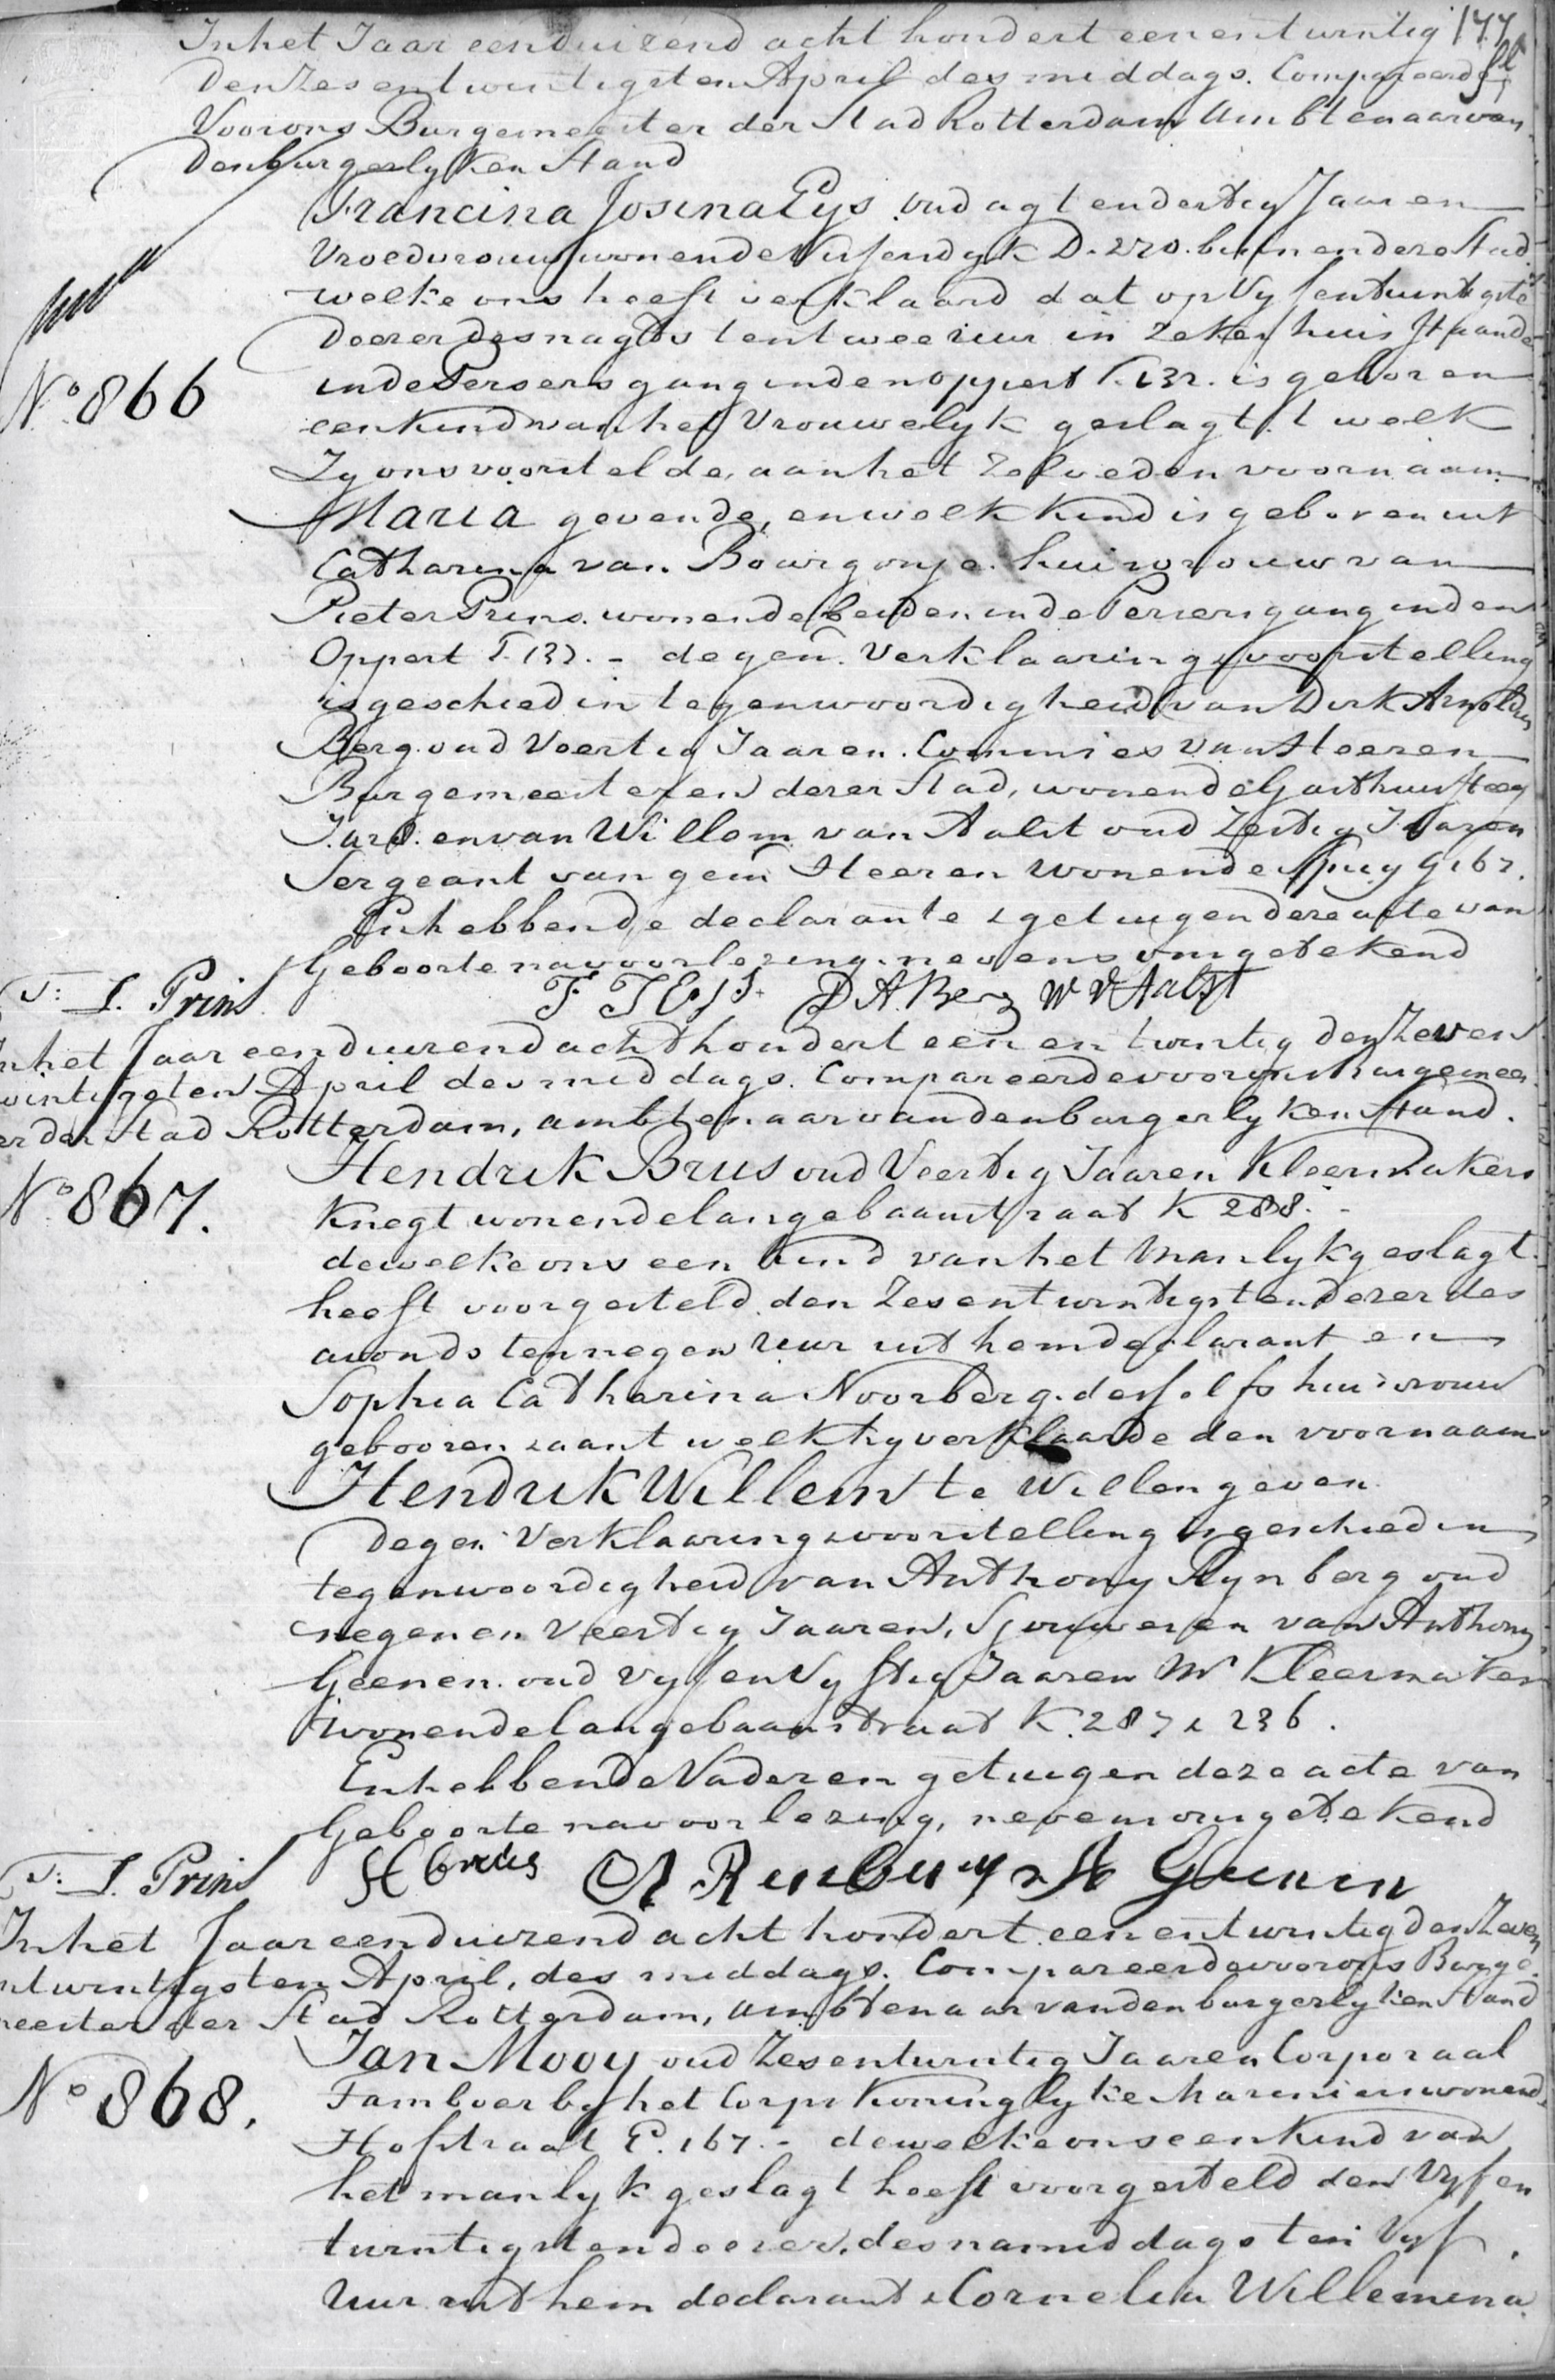 In het Jaar eenduizend acht hondert een en twintig 177
den Zes en twintigsten April des middags. Compareerde
Voor ons Burgemeester der Stad Rotterdam Ambtenaar van
den burgerlyken Stand
Francina Josina Eys oud agt en dertig Jaaren
Vroedvrouw wonende Vissendyk D. 270. binnen deze Stad
welke ons heeft verklaard dat op Vyf en twintigste
dezer des nagts ten twee uur in zeker huis staande
N.o 866
in de Persers gang in den oppert 132. is geboren
een kind van het Vrouwelyk geslagt t welk
Zy ons voorstelde, aan het Zelve den voornaam
Maria gevende, en welk kind is geboren uit
Catharina van Bourgonje huisvrouw van
Pieter Prins. wonende beiden in de Persers gang in den
Oppert F. 132. - de gem. Verklaaring & voorstelling
is geschied in tegenwoordigheid van Dirk Arnoldus
Berg. oud Veertig Jaaren. Commies van Heeren
Burgemeesteren dezer Stad, wonende Gasthuis steeg
en van Willem van Aalst oud Zestig Jaaren
Sergeant van gem Heeren wonende Spuy G 162.
En hebbende declarante & getuigen deze acte van
Geboorte na voorlezing. nevens ons getekend
F: L. Prins F J Eys. D A. Berg W V Aalst
In het Jaar eenduizend acht hondert een en twintig den Zeven
twintigsten April des middags. Compareerde voor ons Burgemees
er der Stad Rotterdam, ambtenaar van den burgerlyken Stand.
N.o 867.
Hendrik Brus oud Veertig Jaaren Kleermakers
Knegt wonende lange baanstraat K 288. -
dewelke ons een kind van het Manlyk geslagt
heeft voorgesteld den Zes en twintigsten dezer des
avonds ten negen uur uit hem declarant en
Sophia Catharina Noorberg. desselfs huisvrouw
gebooren & aan t welk hy verklaarde den voornaam
Hendrik Willem te Willen geven
De gem. Verklaaring & voorstelling is geschied in
tegenwoordigheid van Anthony Rynberg oud
negen en Veertig Jaaren, Sjouwer en van Anthony
Geenen. oud Vyf en Vyftig Jaaren Mr Kleermaker
wonende lange baanstraat K. 287 & 236.
En hebbende Vader en getuigen deze acte van
Geboorte na voorlezing, nevens ons getekend
F: L. Prins H brus A Rinberg A Geenen
In het Jaar eenduizend acht hondert een en twintig den Zeven
ntwintigsten April, des middags. Compareerde voor ons Burge
meester der Stad Rotterdam, ambtenaar van den burgerlyken Stand
N.o 868.
Jan Mooy oud Zes en twintig Jaaren Corporaal
Tamboer by het Corps Koninglyke Mariniers wonend
Hofstraat E. 167. - dewelke ons een kind van
het manlyk geslagt heeft voorgesteld den Vyf en
twintigsten dezer, des namiddags ten Vyf
Uur uit hem declarant & Cornelia Willemina